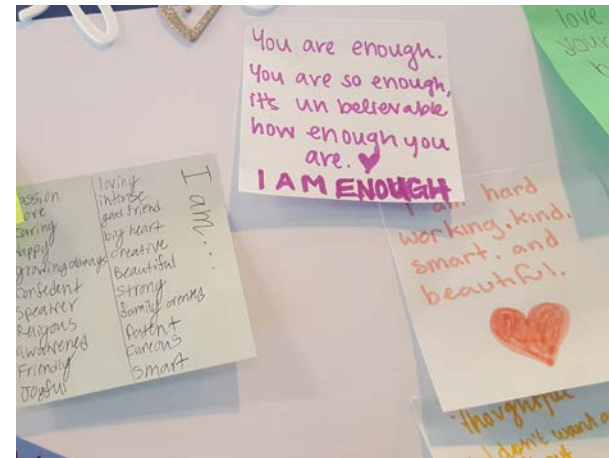 You are enough.
You are so enough,
it's un believable
how enough you
are.
I AM ENOUGH
love
I am...
love
Caring
happy
growing always
Confedent
Speaker
Religous
awakened
Friendly
Joyful
loving
intense
good friend
big heart
creative
Beautiful
Strong
family
Patent
Careous
Smart
I am hard
working. kind.
smart. and
beautiful.
thoughtful
I don't want